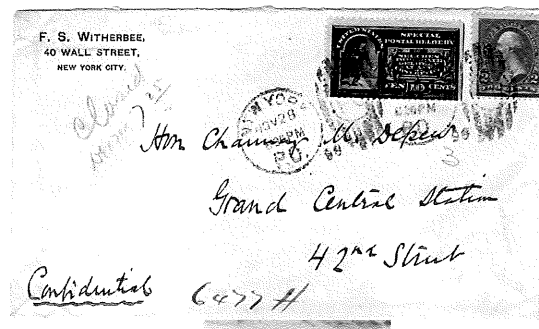 F. S. WITHERBEE,
40 WALL STREET,
NEW YORK CITY.
SPECIAL
POSTAL DELIVERY
TEN CENTS
Closed
NEW YORK
NOV 28
PM
Hon Chauncey M. Depew
Grand Central Station
42nd Street
Confidential
6477 H